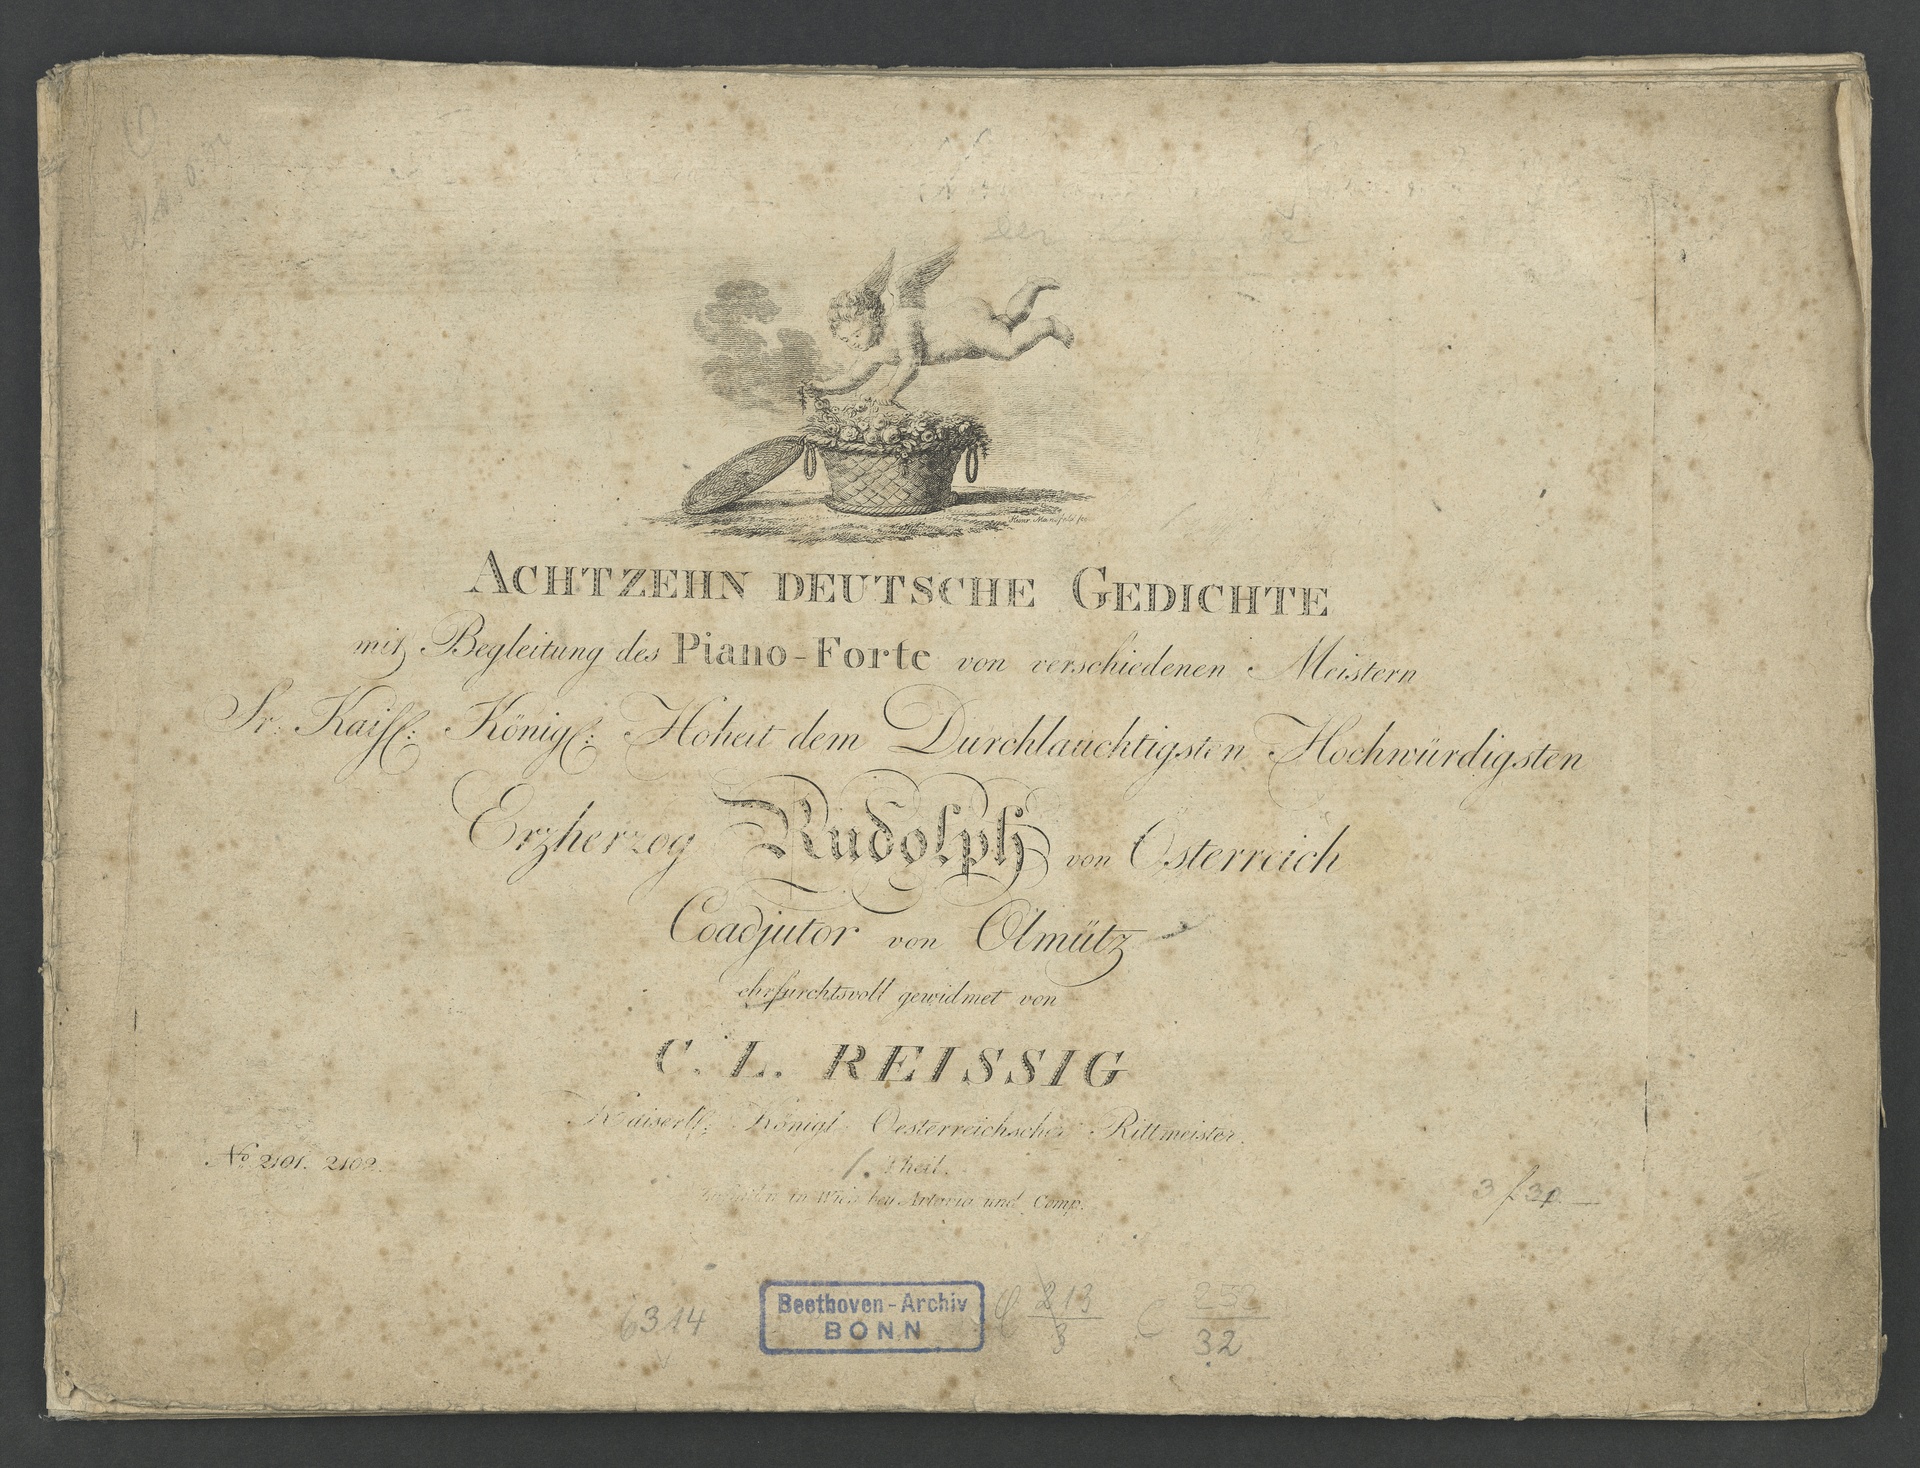 Heinr. Mansfeld fec.
ACHTZEHN DEUTSCHE GEDICHTE
mit Begleitung des Piano-Forte von verschiedenen Meistern
Sr. Kaisl: Königl: Hoheit dem Durchlauchtigsten Hochwürdigsten
Erzherzog Rudolph von Österreich
Coadjutor von Olmütz
ehrfurchtsvoll gewidmet von
C. L. REISSIG
Kaiserl: Königl. Oesterreichscher Rittmeister.
No. 2101. 2102.
1. Theil.
in Wien bey Artaria und Comp.
3 f 30
6314
Beethoven-Archiv
BONN
C 213/3
C 252/32